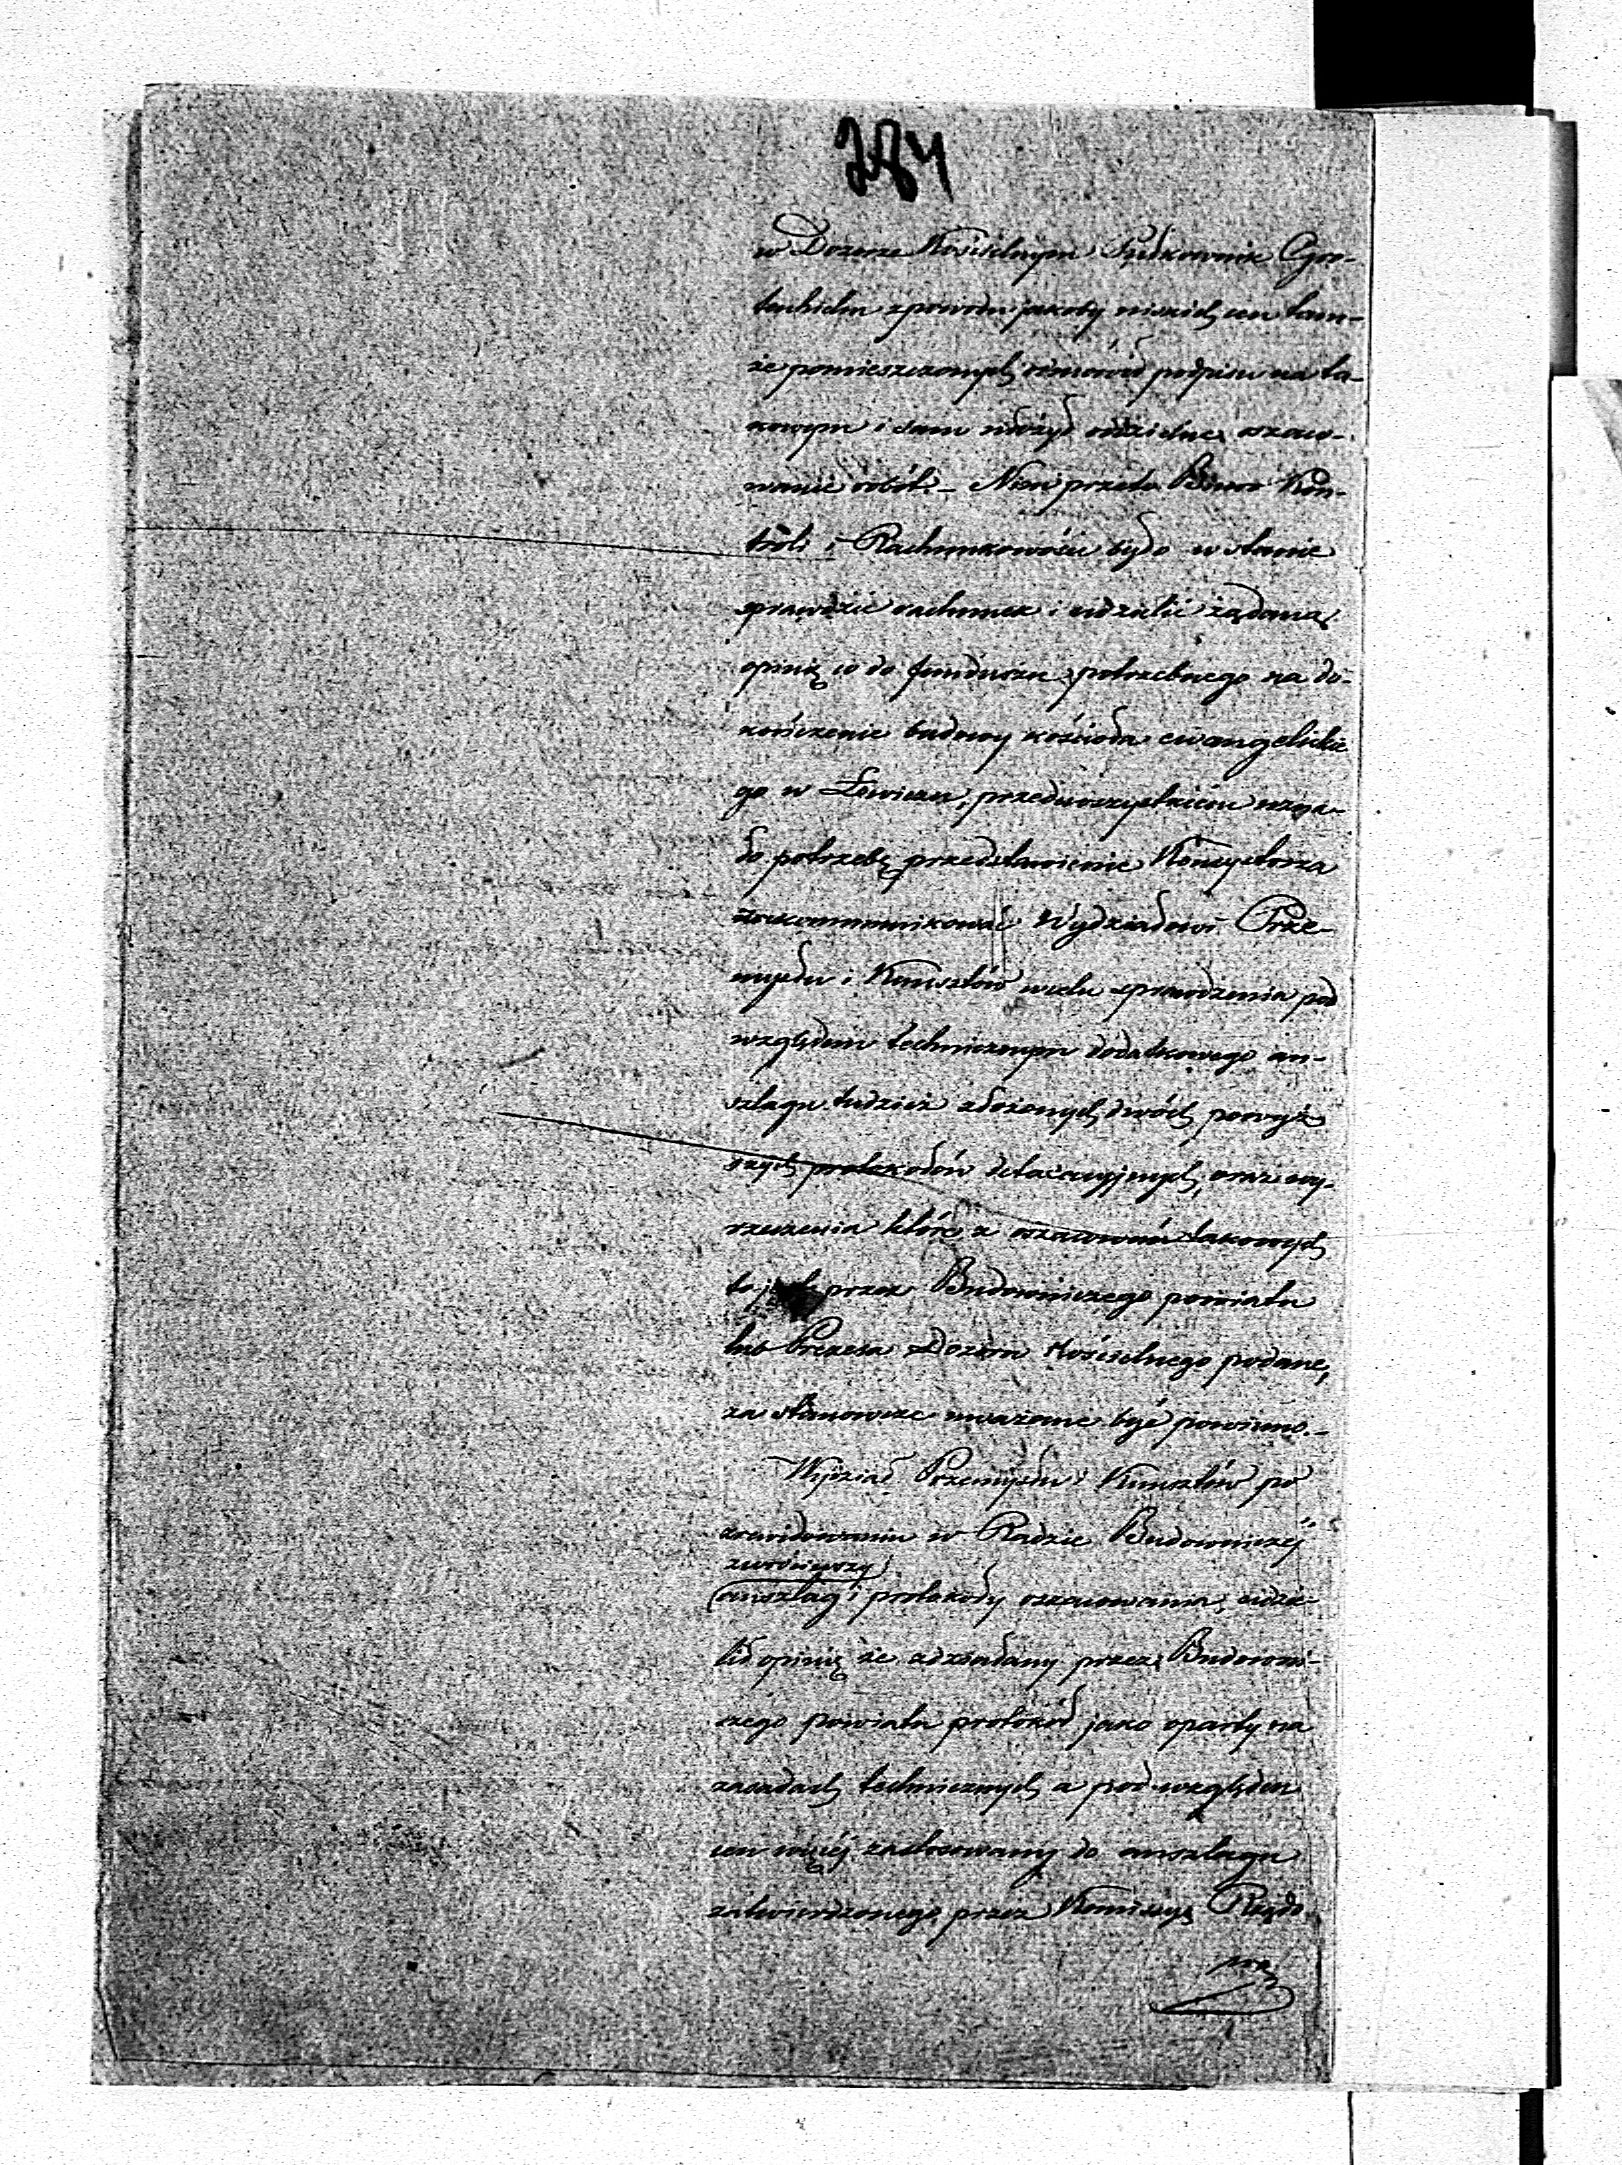 284
w Dozorze Kościelnym Pułkownik
z powodu jakoby niskich cen tam-
że pomieszczonych odmówił podpisu na ta-
kowym i sam złożył oddzielne oszaco-
wanie robót. – Nim przeto Biuro Kon-
troli i Rachunkowości było w stanie
sprawdzić rachunek i udzielić żądaną
opinię co do funduszu potrzebnego na do-
kończenie budowy kościoła ewangelickie
go w Łowiczu, przedewszystkiem
potrzebę przedstawienie Konsystorza
zakommunikować Wydziałowi Prze-
mysłu i Kunsztów celu sprawdzenia pod
względem technicznym dodatkowego an-
szlagu tudzież złożonych dwóch powyż
szych protokołów detaxacyjnych, oraz wy-
rzeczenia które z oszacowań takowych
to jest przez Budowniczego powiatu
lub Prezesa Dozoru Kościelnego podane,
za stanowcze uważane być powinno. –
Wydział Przemysłu i Kunsztów po
zrewidowaniu w Radzie Budowniczej
zwróciwszy
anszlag i protokoły oszacowania, udzie-
lił opinię że zdziałany przez Budowni-
czego powiatu protokół jako oparty na
zasadach technicznych a pod względem
cen więcej zastosowany do anszlagu
zatwierdzonego przez Komissyę Rządo